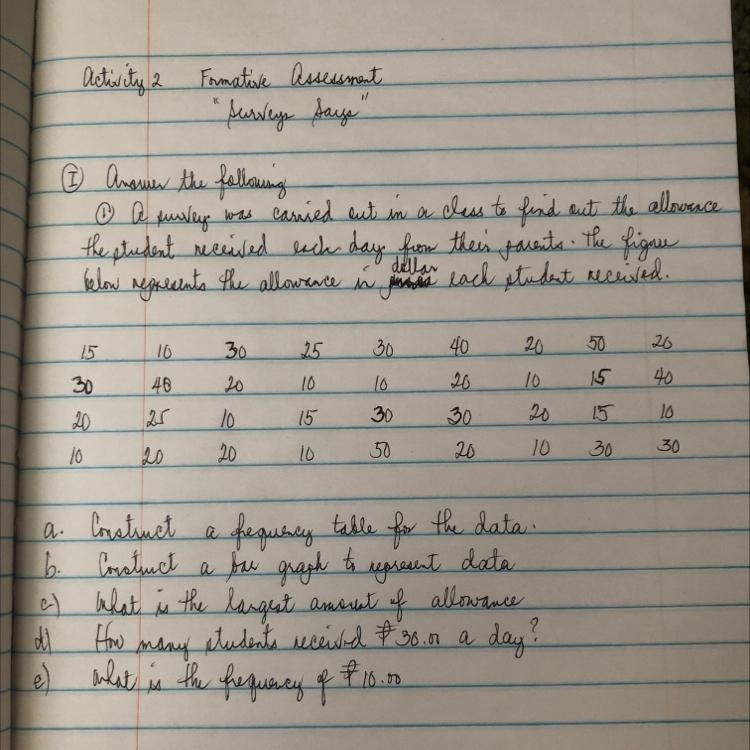 Activity 2 Formative Assessment
"Surveys Says"
I Answer the following
1) A survey was carried out in a class to find out the allowance
the student received each day from their parents. The figure
below represents the allowance in dollar each student received.
15 10 30 25 30 40 20 50 20
30 40 20 10 10 20 10 15 40
20 25 10 15 30 30 20 15 10
10 20 20 10 50 20 10 30 30
a. Construct a frequency table for the data.
b. Construct a bar graph to represent data
c) What is the largest amount of allowance
d) How many students received ₱30.00 a day?
e) What is the frequency of ₱10.00